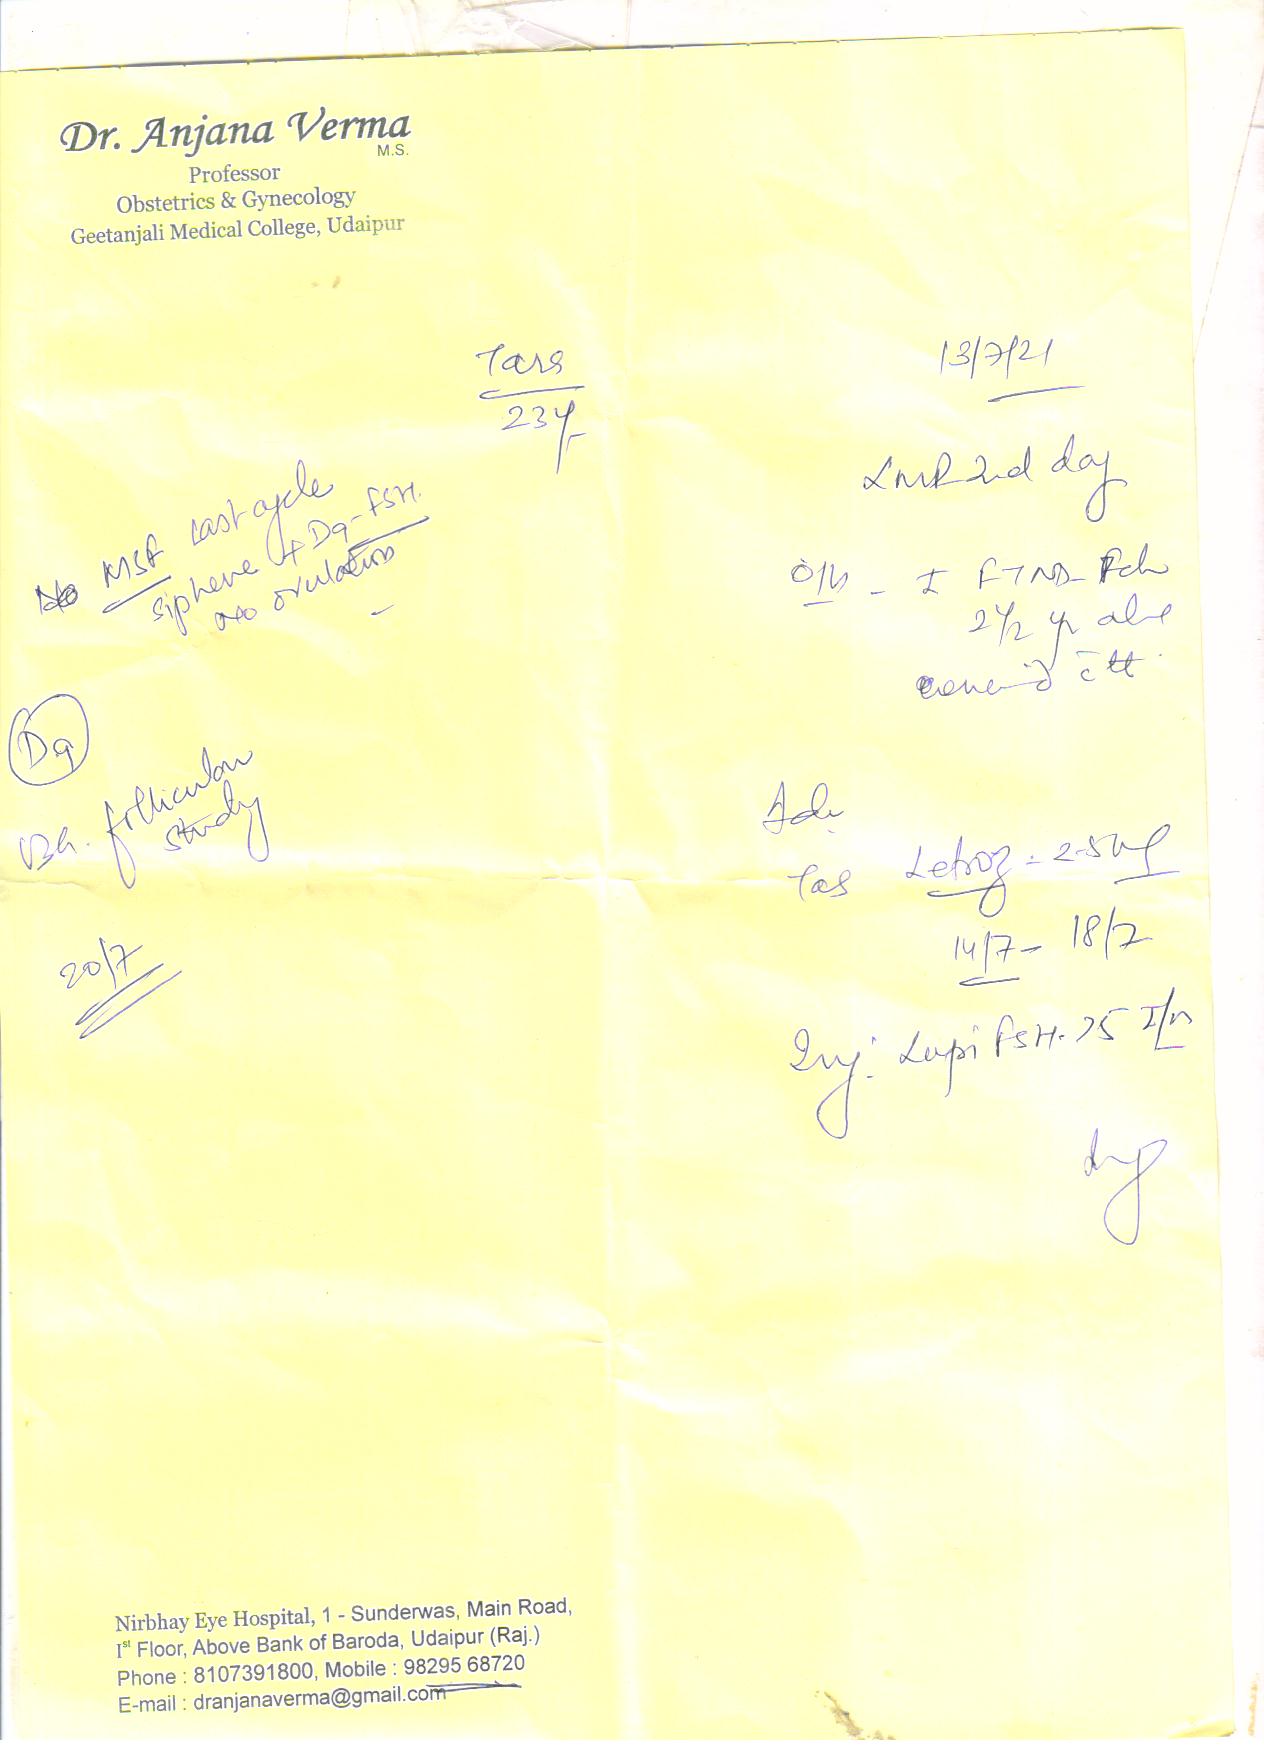 Dr. Anjana Verma
M.S.
Professor
Obstetrics & Gynecology
Geetanjali Medical College, Udaipur
13/7/21
23y
LMP 2nd day
MSA Last cycle
siphene + D9-FSH.
no ovulation
O/H - I FTND- Fch
2½ yr
D9
follicular
study
20/7
Adv
Letroz - 2.5mg
14/7 - 18/7
Inj. Lupi FSH. 75 I/m
Nirbhay Eye Hospital, 1 - Sunderwas, Main Road,
Iˢᵗ Floor, Above Bank of Baroda, Udaipur (Raj.)
Phone : 8107391800, Mobile : 98295 68720
E-mail : dranjanaverma@gmail.com